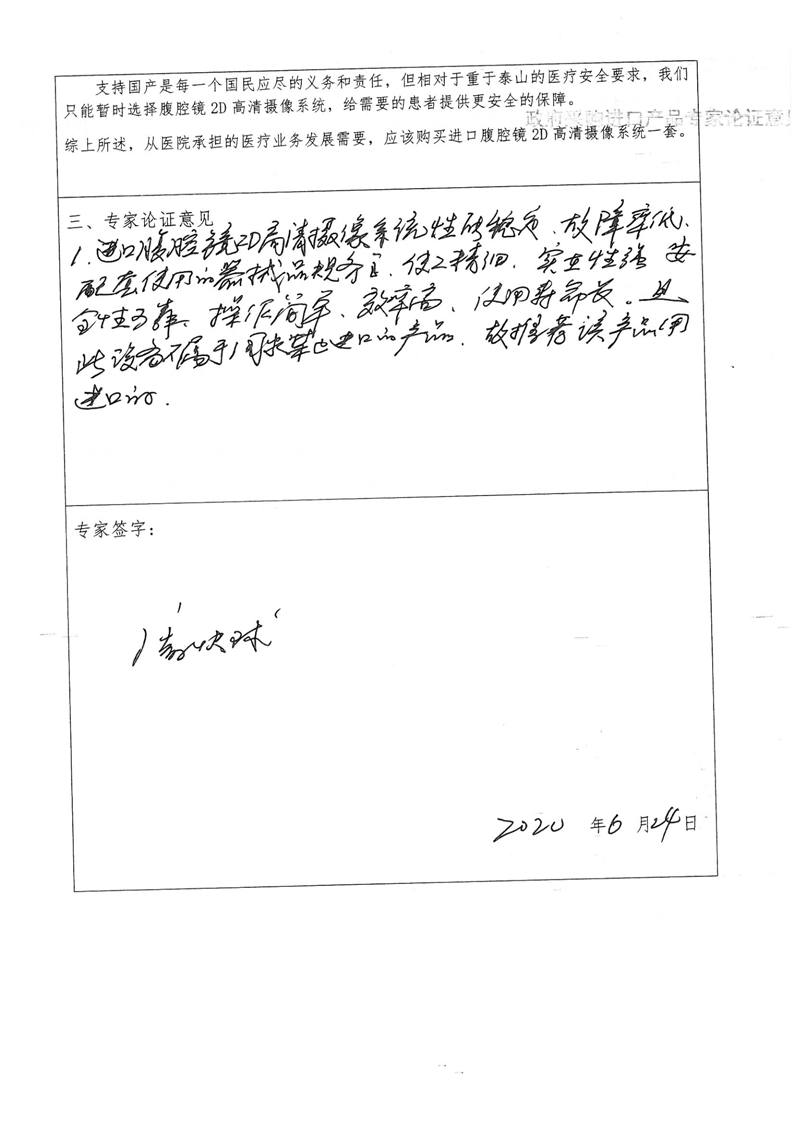 支持国产是每一个国民应尽的义务和责任，但相对于重于泰山的医疗安全要求，我们
只能暂时选择腹腔镜 2D 高清摄像系统，给需要的患者提供更安全的保障。
政府采购进口产品专家论证意见
综上所述，从医院承担的医疗业务发展需要，应该购买进口腹腔镜 2D 高清摄像系统一套。
三、专家论证意见
1.进口腹腔镜2D高清摄像系统性能稳定、故障率低、
配套使用的器械品规齐全、使工精细、实用性强 安
全性可靠、操作简单、效率高、使用寿命长。且
此设备不属于国家禁止进口的产品、故推荐该产品用
进口的.
专家签字：
2020 年 6 月 24 日